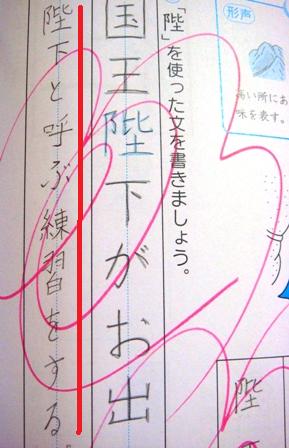 形声
高い所にあ
味を表す。
「陛」を使った文を書きましょう。
国王陛下がお出
陛下と呼ぶ練習をする
陛